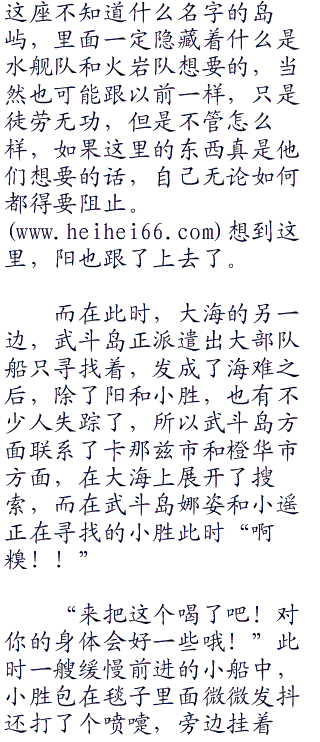 这座不知道什么名字的岛
屿，里面一定隐藏着什么是
水舰队和火岩队想要的，当
然也可能跟以前一样，只是
徒劳无功，但是不管怎么
样，如果这里的东西真是他
们想要的话，自己无论如何
都得要阻止。
(www.heihei66.com)想到这
里，阳也跟了上去了。
而在此时，大海的另一
边，武斗岛正派遣出大部队
船只寻找着，发成了海难之
后，除了阳和小胜，也有不
少人失踪了，所以武斗岛方
面联系了卡那兹市和橙华市
方面，在大海上展开了搜
索，而在武斗岛娜姿和小遥
正在寻找的小胜此时“啊
糗！！”
“来把这个喝了吧！对
你的身体会好一些哦！”此
时一艘缓慢前进的小船中，
小胜包在毯子里面微微发抖
还打了个喷嚏，旁边挂着